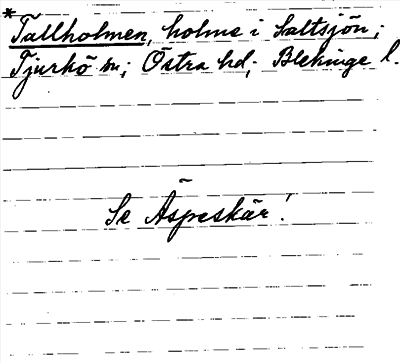 * Tallholmen, holme i Saltsjön;
Tjurkö sn; Östra hd; Blekinge l.
Se Äspeskär!